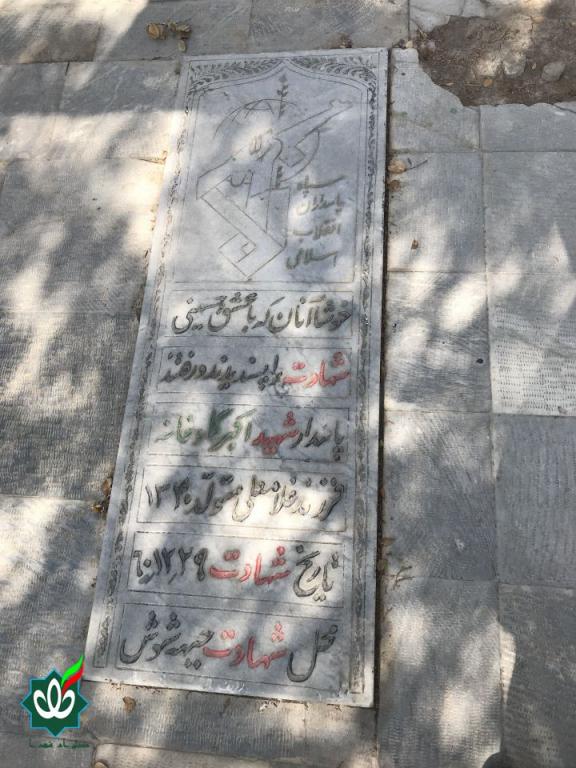 لا
سپاه
پاسداران
انقلاب
اسلامی
خوشا آنان که با عشق حسینی
شهادت را پسندیدند و رفتند
پاسدار شهید اکبر گاوخانه
فرزند غلامعلی متولد ۱۳۴۰
تاریخ شهادت ۶۰٫۱۲٫۲۹
محل شهادت جبهه شوش